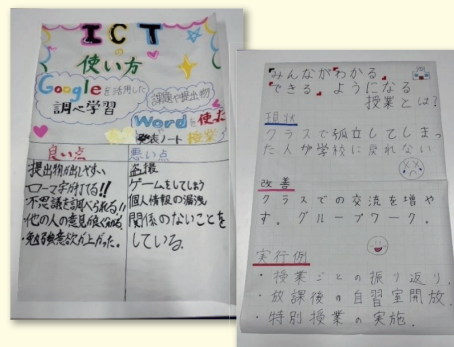 ICT
の
使い方
Googleを活用した
調べ学習
課題や提出物
Wordを使った
発表ノート 授業
良い点
提出物が出しやすい
・ローマ字が打てる!!
・不思議を調べられる!!
・他の人の意見が良く分かる
意欲が上がった。
悪い点
盗撮
ゲームをしてしまう
個人情報の漏洩
関係のないことを
している。
「みんながわかる」
「できる」ようになる
授業とは?
現状
クラスで孤立してしまっ
た人が学校に戻れない
改善
クラスでの交流を増や
す。グループワーク。
実行例
・授業ごとの振り返り.
・放課後の自習室開放.
・特別授業の実施.